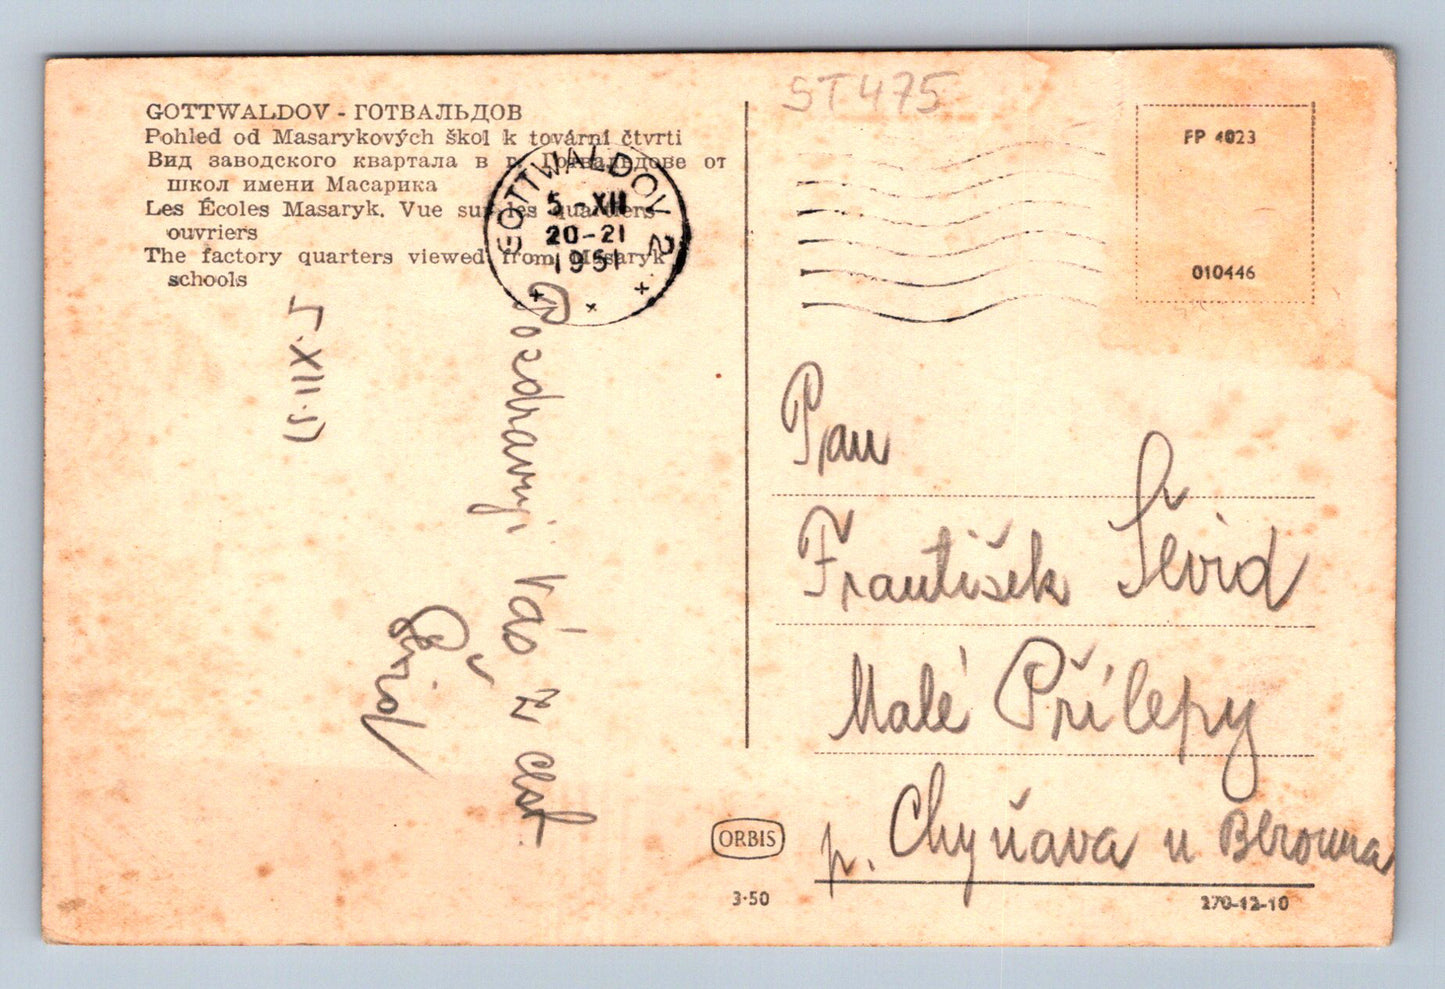 GOTTWALDOV - ГОТВАЛЬДОВ
Pohled od Masarykových škol k tovární čtvrti
Вид заводского квартала в г. Готвальдове от
школ имени Масарика
Les Écoles Masaryk. Vue sur les quartiers
ouvriers
The factory quarters viewed from Masaryk
schools
GOTTWALDOV 2
5 -XII
20-21
1951
ST475
FP 4023
010446
Pozdravuji Vás z cest
Pan
František Švid
Malé Přílepy
p. Chyňava u Berouna
ORBIS
3·50
270-12-10